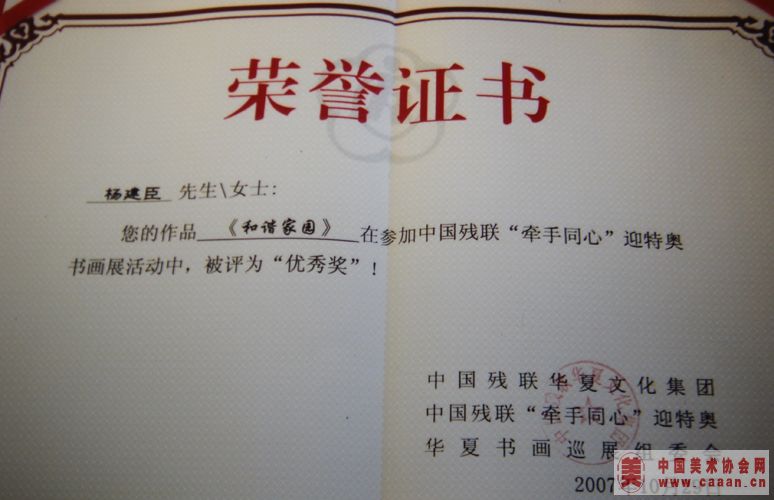 荣誉证书
杨建臣 先生\女士:
您的作品《和谐家园》在参加中国残联“牵手同心”迎特奥
书画展活动中，被评为“优秀奖”！
中国残联华夏文化集团
中国残联“牵手同心”迎特奥
华夏书画巡展组委会
2007
美 中国美术协会网
www.caaan.cn